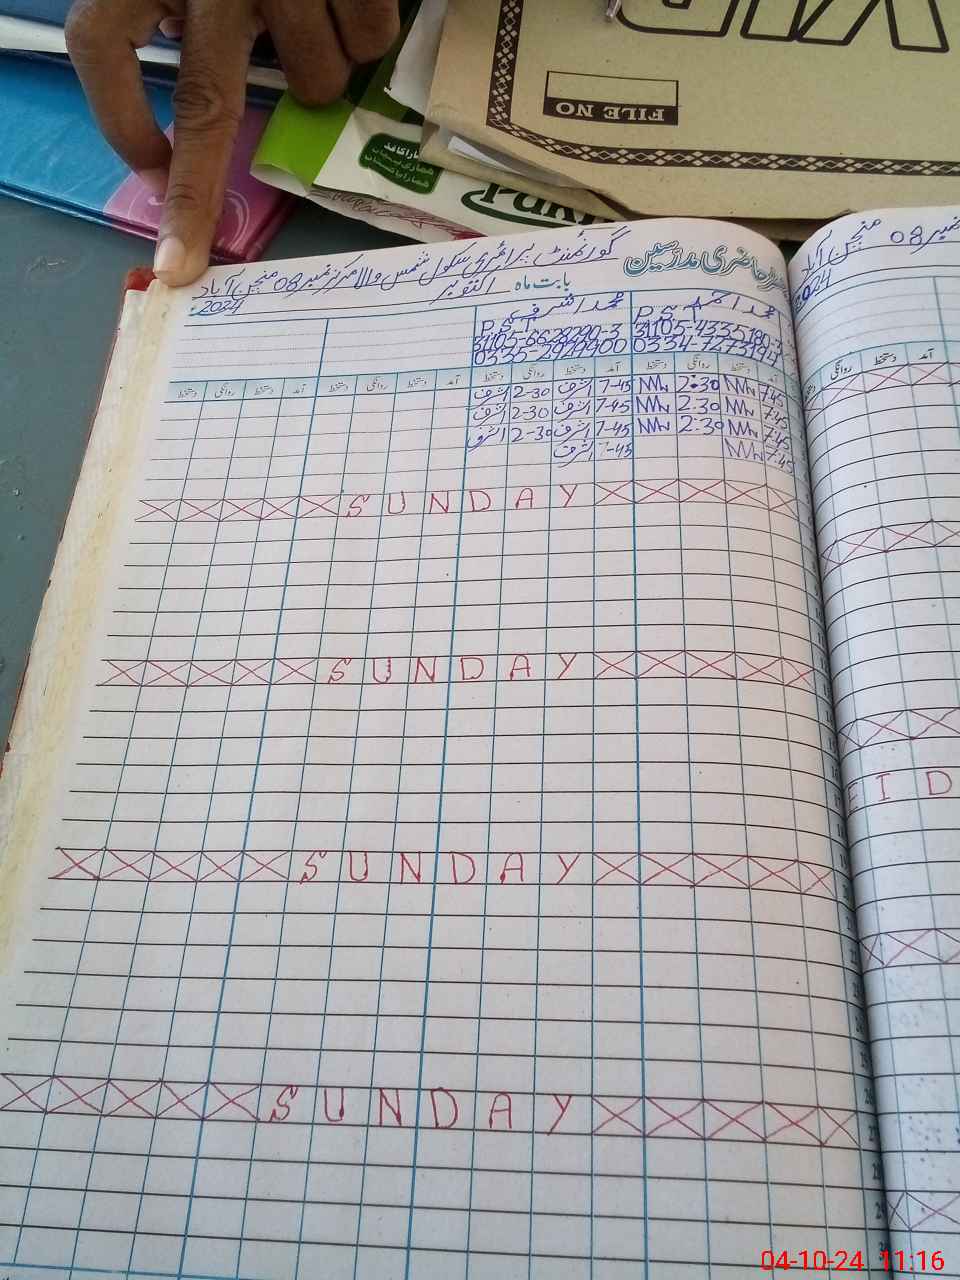 VIP
FILE NO
ہمارا کاغذ
Pak
رجسٹر حاضری مدرسین
گورنمنٹ پرائمری سکول شمس والا مرکز نمبر 08 منچن آباد
بابت ماہ اکتوبر 2024
محمد اشرف
PST
0335-2929900
محمد احمد
PST
31105-4335190-
0334-7273194
دستخط روانگی دستخط آمد دستخط روانگی دستخط آمد دستخط روانگی دستخط آمد دستخط روانگی دستخط آمد
اشرف 2-30 اشرف 7-45 2:30 7:45
اشرف 2-30 اشرف 7-45 2:30 7:45
اشرف 2-30 اشرف 7-45 2:30 7:45
اشرف 7-45 7:45
SUNDAY
SUNDAY
SUNDAY
SUNDAY
نمبر 08 منچن آباد
2024
EID
04-10-24 11:16